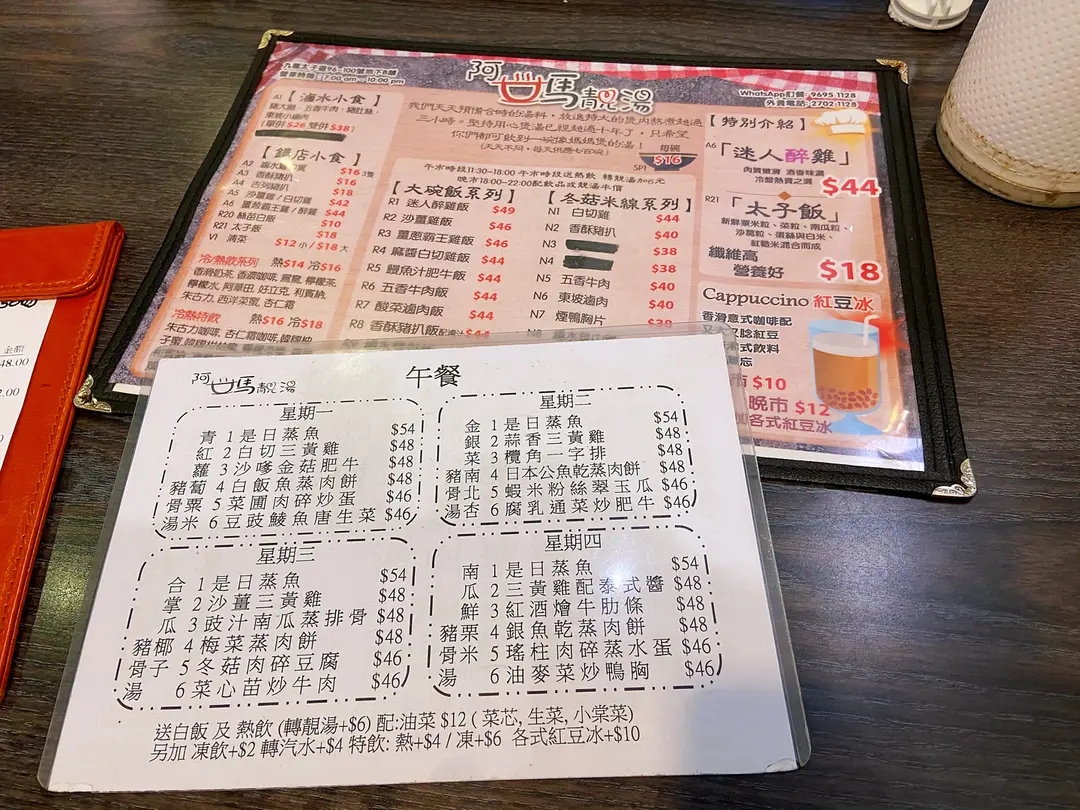 九龍太子道96-100號地下B舖
營業時間：7:00 am - 10:00 pm
阿媽靚湯
WhatsApp訂餐: 9695 1128
外賣電話: 2702 1128
我們天天預備合時的湯料，放進特大的煲內熬煮超過
三小時。堅持用心煲湯已經超過十年了，只希望
你們都可飲到一碗像媽媽煲的湯！
(天天不同，每天供應七百碗)
每碗
SP1 $16
A1【滷水小食】
豬大腸、五香牛肉、豬肚絲、
東坡小滷肉
(單併 $26 雙併 $38)
小食】
A2 $16 隻
A3 香酥豬扒 $16
A4 古列豬扒 $18
A5 沙薑雞 / 白切雞 $42
A6 薑蔥霸王雞 / 醉雞 $44
R20 絲苗白飯 $10
R21 太子飯 $18
V1 清菜 $12 小 / $18 大
冷/熱飲系列 熱$14 冷$16
香滑奶茶, 香濃咖啡, 鴛鴦, 檸檬茶
檸檬水, 阿華田, 好立克, 利賓納,
朱古力, 西洋菜蜜, 杏仁霜
冷熱特飲 熱$16 冷$18
朱古力咖啡, 杏仁霜咖啡,
午市時段11:30~18:00 午市時段送熱飲 轉靚湯加6元
晚市18:00~22:00配飲品或靚湯半價
【大碗飯系列】
R1 迷人醉雞飯 $49
R2 沙薑雞飯 $46
R3 薑蔥霸王雞飯 $46
R4 麻醬白切雞飯 $44
R5 鰻魚汁肥牛飯 $44
R6 五香牛肉飯 $44
R7 酸菜滷肉飯 $44
R8 香酥豬扒飯 $44
【冬菇米線系列】
N1 白切雞 $44
N2 香酥豬扒 $40
N3 $38
N4 $38
N5 五香牛肉 $40
N6 東坡滷肉 $40
N7 煙鴨胸片 $38
N8
【特別介紹】
A6「迷人醉雞」
肉質嫩滑 酒香味濃
冷盤熱賣之選 $44
R21「太子飯」
新鮮粟米粒、菜粒、南瓜粒、
沙葛粒、蛋絲與白米、
紅糙米混合而成
纖維高
營養好 $18
Cappuccino 紅豆冰
香滑意式咖啡配
市 $10
晚市 $12
各式紅豆冰
阿媽靚湯
午餐
星期一
青 1 是日蒸魚 $54
紅 2 白切三黃雞 $48
蘿 3 沙嗲金菇肥牛 $48
豬蔔 4 白飯魚蒸肉餅 $48
骨粟 5 菜圃肉碎炒蛋 $46
湯米 6 豆豉鯪魚唐生菜 $46
星期二
金 1 是日蒸魚 $54
銀 2 蒜香三黃雞 $48
菜 3 欖角一字排 $48
豬南 4 日本公魚乾蒸肉餅 $48
骨北 5 蝦米粉絲翠玉瓜 $46
湯杏 6 腐乳通菜炒肥牛 $46
星期三
合 1 是日蒸魚 $54
掌 2 沙薑三黃雞 $48
瓜 3 豉汁南瓜蒸排骨 $48
豬椰 4 梅菜蒸肉餅 $48
骨子 5 冬菇肉碎豆腐 $46
湯 6 菜心苗炒牛肉 $46
星期四
南 1 是日蒸魚 $54
瓜 2 三黃雞配泰式醬 $48
鮮 3 紅酒燴牛肋條 $48
豬栗 4 銀魚乾蒸肉餅 $48
骨米 5 瑤柱肉碎蒸水蛋 $46
湯 6 油麥菜炒鴨胸 $46
送白飯 及 熱飲 (轉靚湯+$6) 配:油菜 $12 ( 菜芯, 生菜, 小棠菜)
另加 凍飲+$2 轉汽水+$4 特飲: 熱+$4 / 凍+$6 各式紅豆冰+$10
金額
48.00